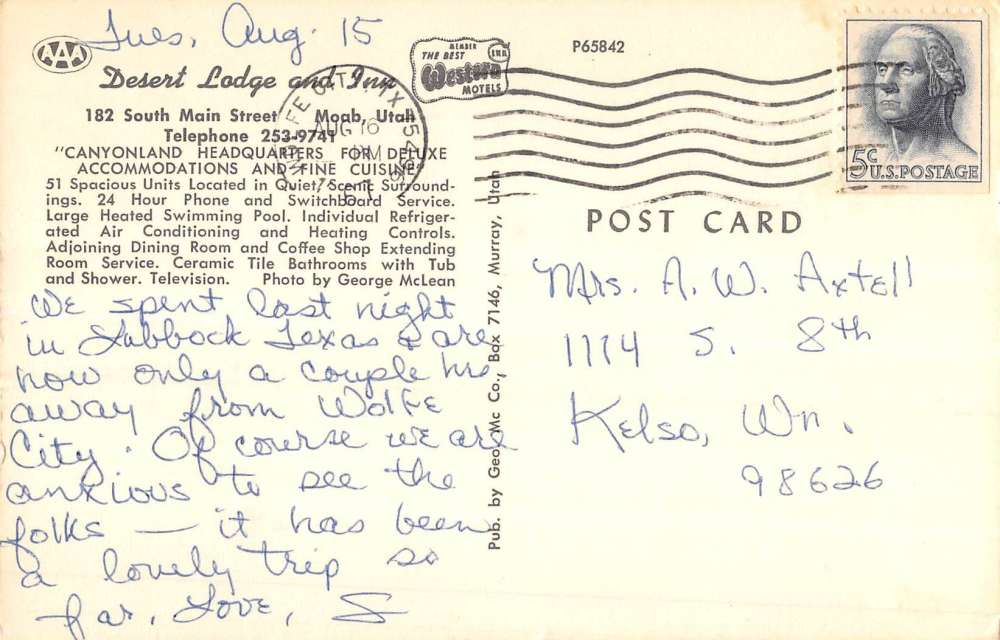 Tues, Aug. 15
AAA
Desert Lodge and Inn
182 South Main Street Moab, Utah
Telephone 253-9741
"CANYONLAND HEADQUARTERS FOR DELUXE
ACCOMMODATIONS AND FINE CUISINE"
51 Spacious Units Located in Quiet, Scenic Surround-
ings. 24 Hour Phone and Switchboard Service.
Large Heated Swimming Pool. Individual Refriger-
ated Air Conditioning and Heating Controls.
Adjoining Dining Room and Coffee Shop Extending
Room Service. Ceramic Tile Bathrooms with Tub
and Shower. Television. Photo by George McLean
We spent last night
in Lubbock Texas & are
now only a couple hrs
away from Wolfe
City. Of course we are
anxious to see the
folks — it has been
a lovely trip so
far, Love, S
MEMBER
THE BEST
Western
MOTELS
P65842
AUG 16
PM
5¢ U.S. POSTAGE
POST CARD
Pub. by Geo. Mc Co., Box 7146, Murray, Utah
Mrs. A. W. Axtell
1114 S. 8th
Kelso, Wn.
98626